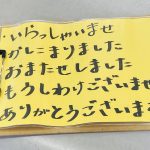 ・いらっしゃいませ
かしこまりました
おまたせしました
もうしわけございませ
ありがとうございま